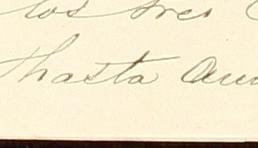 los tres
hasta